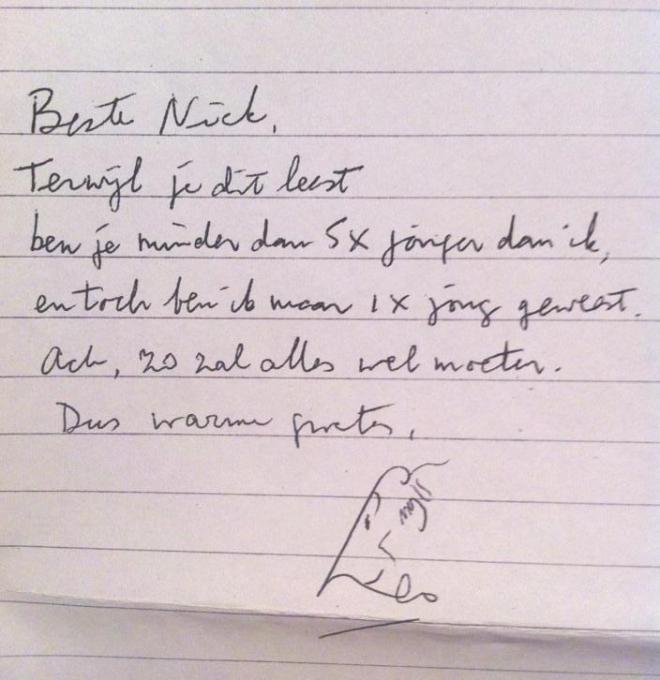 Beste Nick,
Terwijl je dit leest
ben je minder dan 5x jonger dan ik,
en toch ben ik maar 1x jong geweest.
Ach, zo zal alles wel moeten.
Dus warme groeten,
Leo